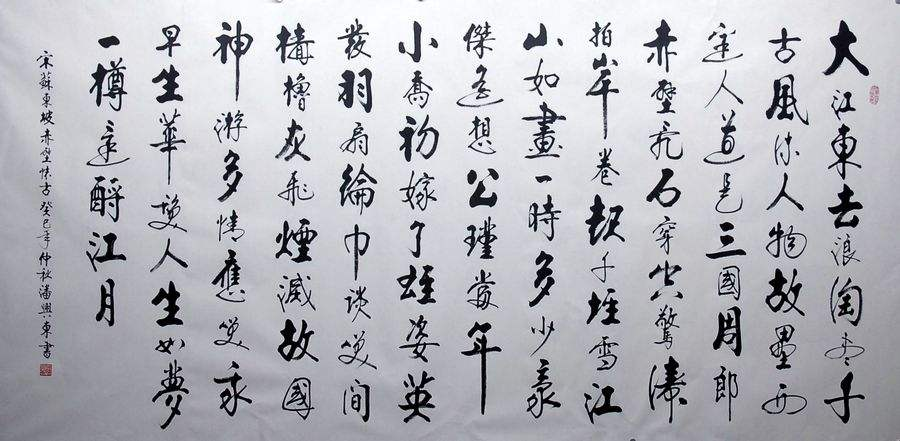 大江東去浪淘盡千
古風流人物故壘西
邊人道是三國周郎
赤壁亂石穿空驚濤
拍岸卷起千堆雪江
山如畫一時多少豪
傑遙想公瑾當年
小喬初嫁了雄姿英
發羽扇綸巾談笑間
檣櫓灰飛煙滅故國
神游多情應笑我
早生華髮人生如夢
一樽還酹江月
宋蘇東坡赤壁懷古癸巳年仲秋潘興東書